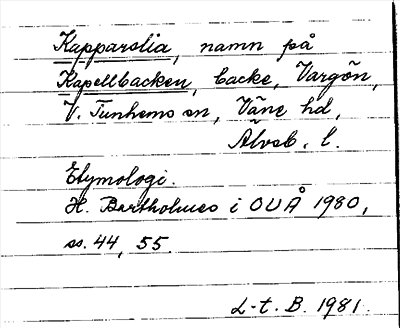 Kapparslia, namn på
Kapellbacken, backe, Vargön,
V. Tunhems sn, Väne hd,
Älvsb. l.
Etymologi.
H. Bartholdus i OUÅ 1980,
ss. 44, 55.
L-t. B. 1981.